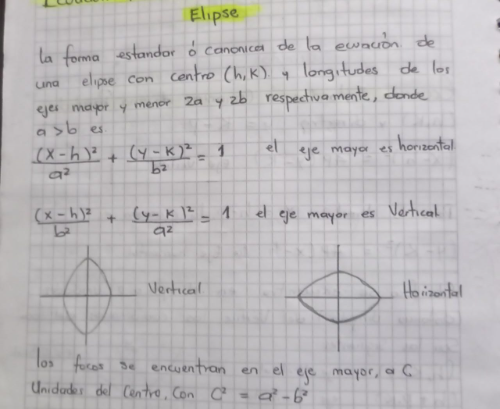 Elipse
la forma estandar ó canonica de la ecuación de
una elipse con centro (h,k) y longitudes de los
ejes mayor y menor 2a y 2b respectivamente, donde
a>b es
(x-h)²/a² + (y-k)²/b² = 1 el eje mayor es horizontal
(x-h)²/b² + (y-k)²/a² = 1 el eje mayor es Vertical
Vertical
Horizontal
los focos se encuentran en el eje mayor, a C
Unidades del Centro, Con C² = a² - b²